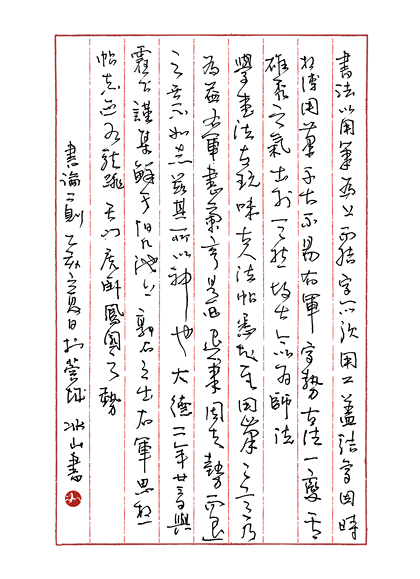 書法以用筆爲上而結字亦須用工蓋結字因時
相傳用筆千古不易右軍字勢古法一變其
雄秀之氣出於天然故古今以爲師法
學書法在玩味古人法帖悉知其用筆之意乃
爲益右軍書蘭亭是已退筆因其勢而
之無不如志茲其所以神也大德二年廿三日與
霍公謹集鮮于伯幾池上郭右之出右軍思想
帖有龍跳天門虎卧鳳閣之勢
書論二則乙亥夏日於營城冰山書